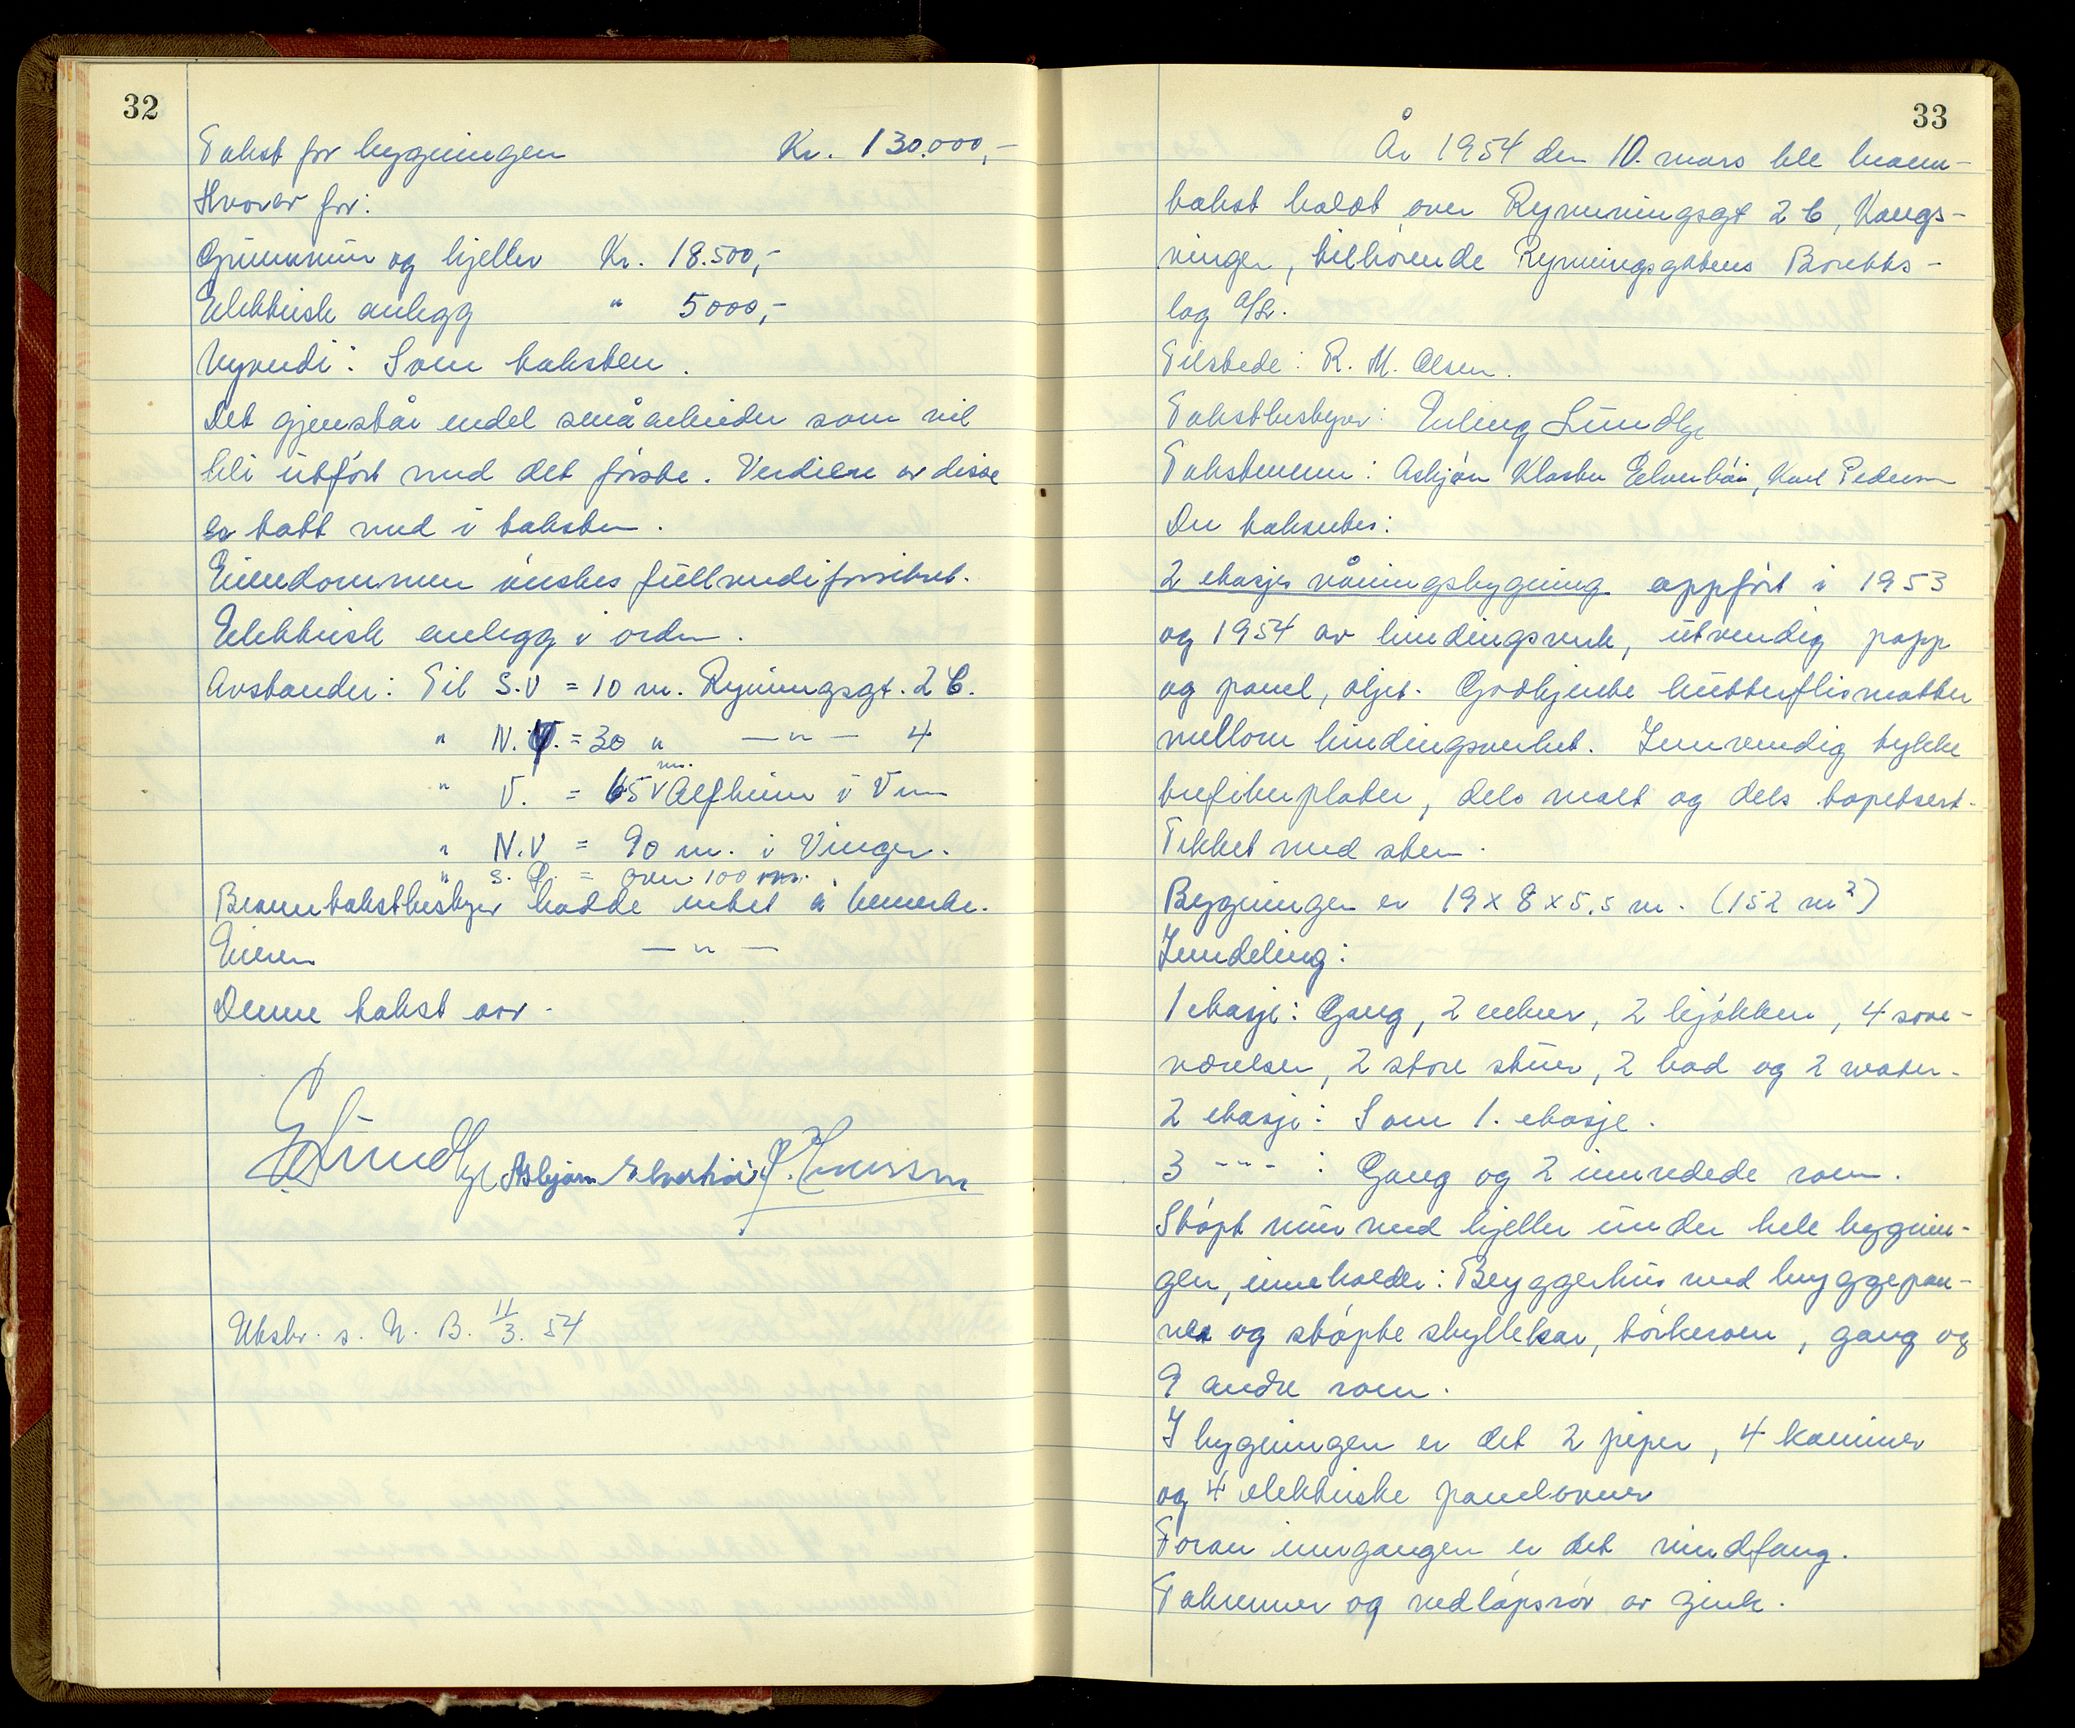 32
Takst for bygningen Kr. 130.000,-
Hvorav for:
Grunnmur og kjeller Kr. 18.500,-
Elektrisk anlegg " 5000,-
Nyverdi: Som taksten.
Det gjenstår endel småarbeider som vil
bli utført med det første. Verdien av disse
er tatt med i taksten.
Eiendommen ønskes fullverdiforsikret.
Elektrisk anlegg i orden.
Avstander: Til S.V = 10 m. Ryningsgt. 2 C.
" N. = 30 " — " — 4
" V. = 65 m. Alfheim i Vin
" N.V = 90 m. i Vinger.
" S. Ø. = over 100 m.
Branntakstbestyrer hadde intet å bemerke.
Eieren — " —
Denne takst avv.
E Lundby Asbjørn Elverhøi
Utskr. s. N. B. 11/3. 54
33
År 1954 den 10. mars ble brann-
takst holdt over Rynningsgt 2 C, Kongs-
vinger, tilhørende Rynningsgatens Boretts-
lag A/L.
Tilstede: R. M. Olsen.
Takstbestyrer: Erling Lundby
Takstmenn: Asbjørn Klaston Elverhøi, Karl Pedersen
Der takseres:
2 etasjes våningsbygning oppført i 1953
og 1954 av bindingsverk, utvendig papp
og panel, oljet. Godkjente kutterflismatter
mellom bindingsverket. Innvendig tykke
trefiberplater, dels malt og dels tapetsert.
Tekket med sten.
Bygningen er 19 x 8 x 5,5 m. (152 m²)
Inndeling:
1 etasje: Gang, 2 entreer, 2 kjøkken, 4 sove-
værelser, 2 store stuer, 2 bad og 2 water.
2 etasje: Som 1. etasje.
3 - " - : Gang og 2 innredede rom.
Støpt mur med kjeller under hele bygnin-
gen, inneholder: Bryggerhus med bryggepan-
ne og støpte skyllekar, tørkerom, gang og
9 andre rom.
I bygningen er det 2 piper, 4 kaminer
og 4 elektriske panelovner
Foran inngangen er det vindfang.
Takrenner og nedløpsrør av zink.